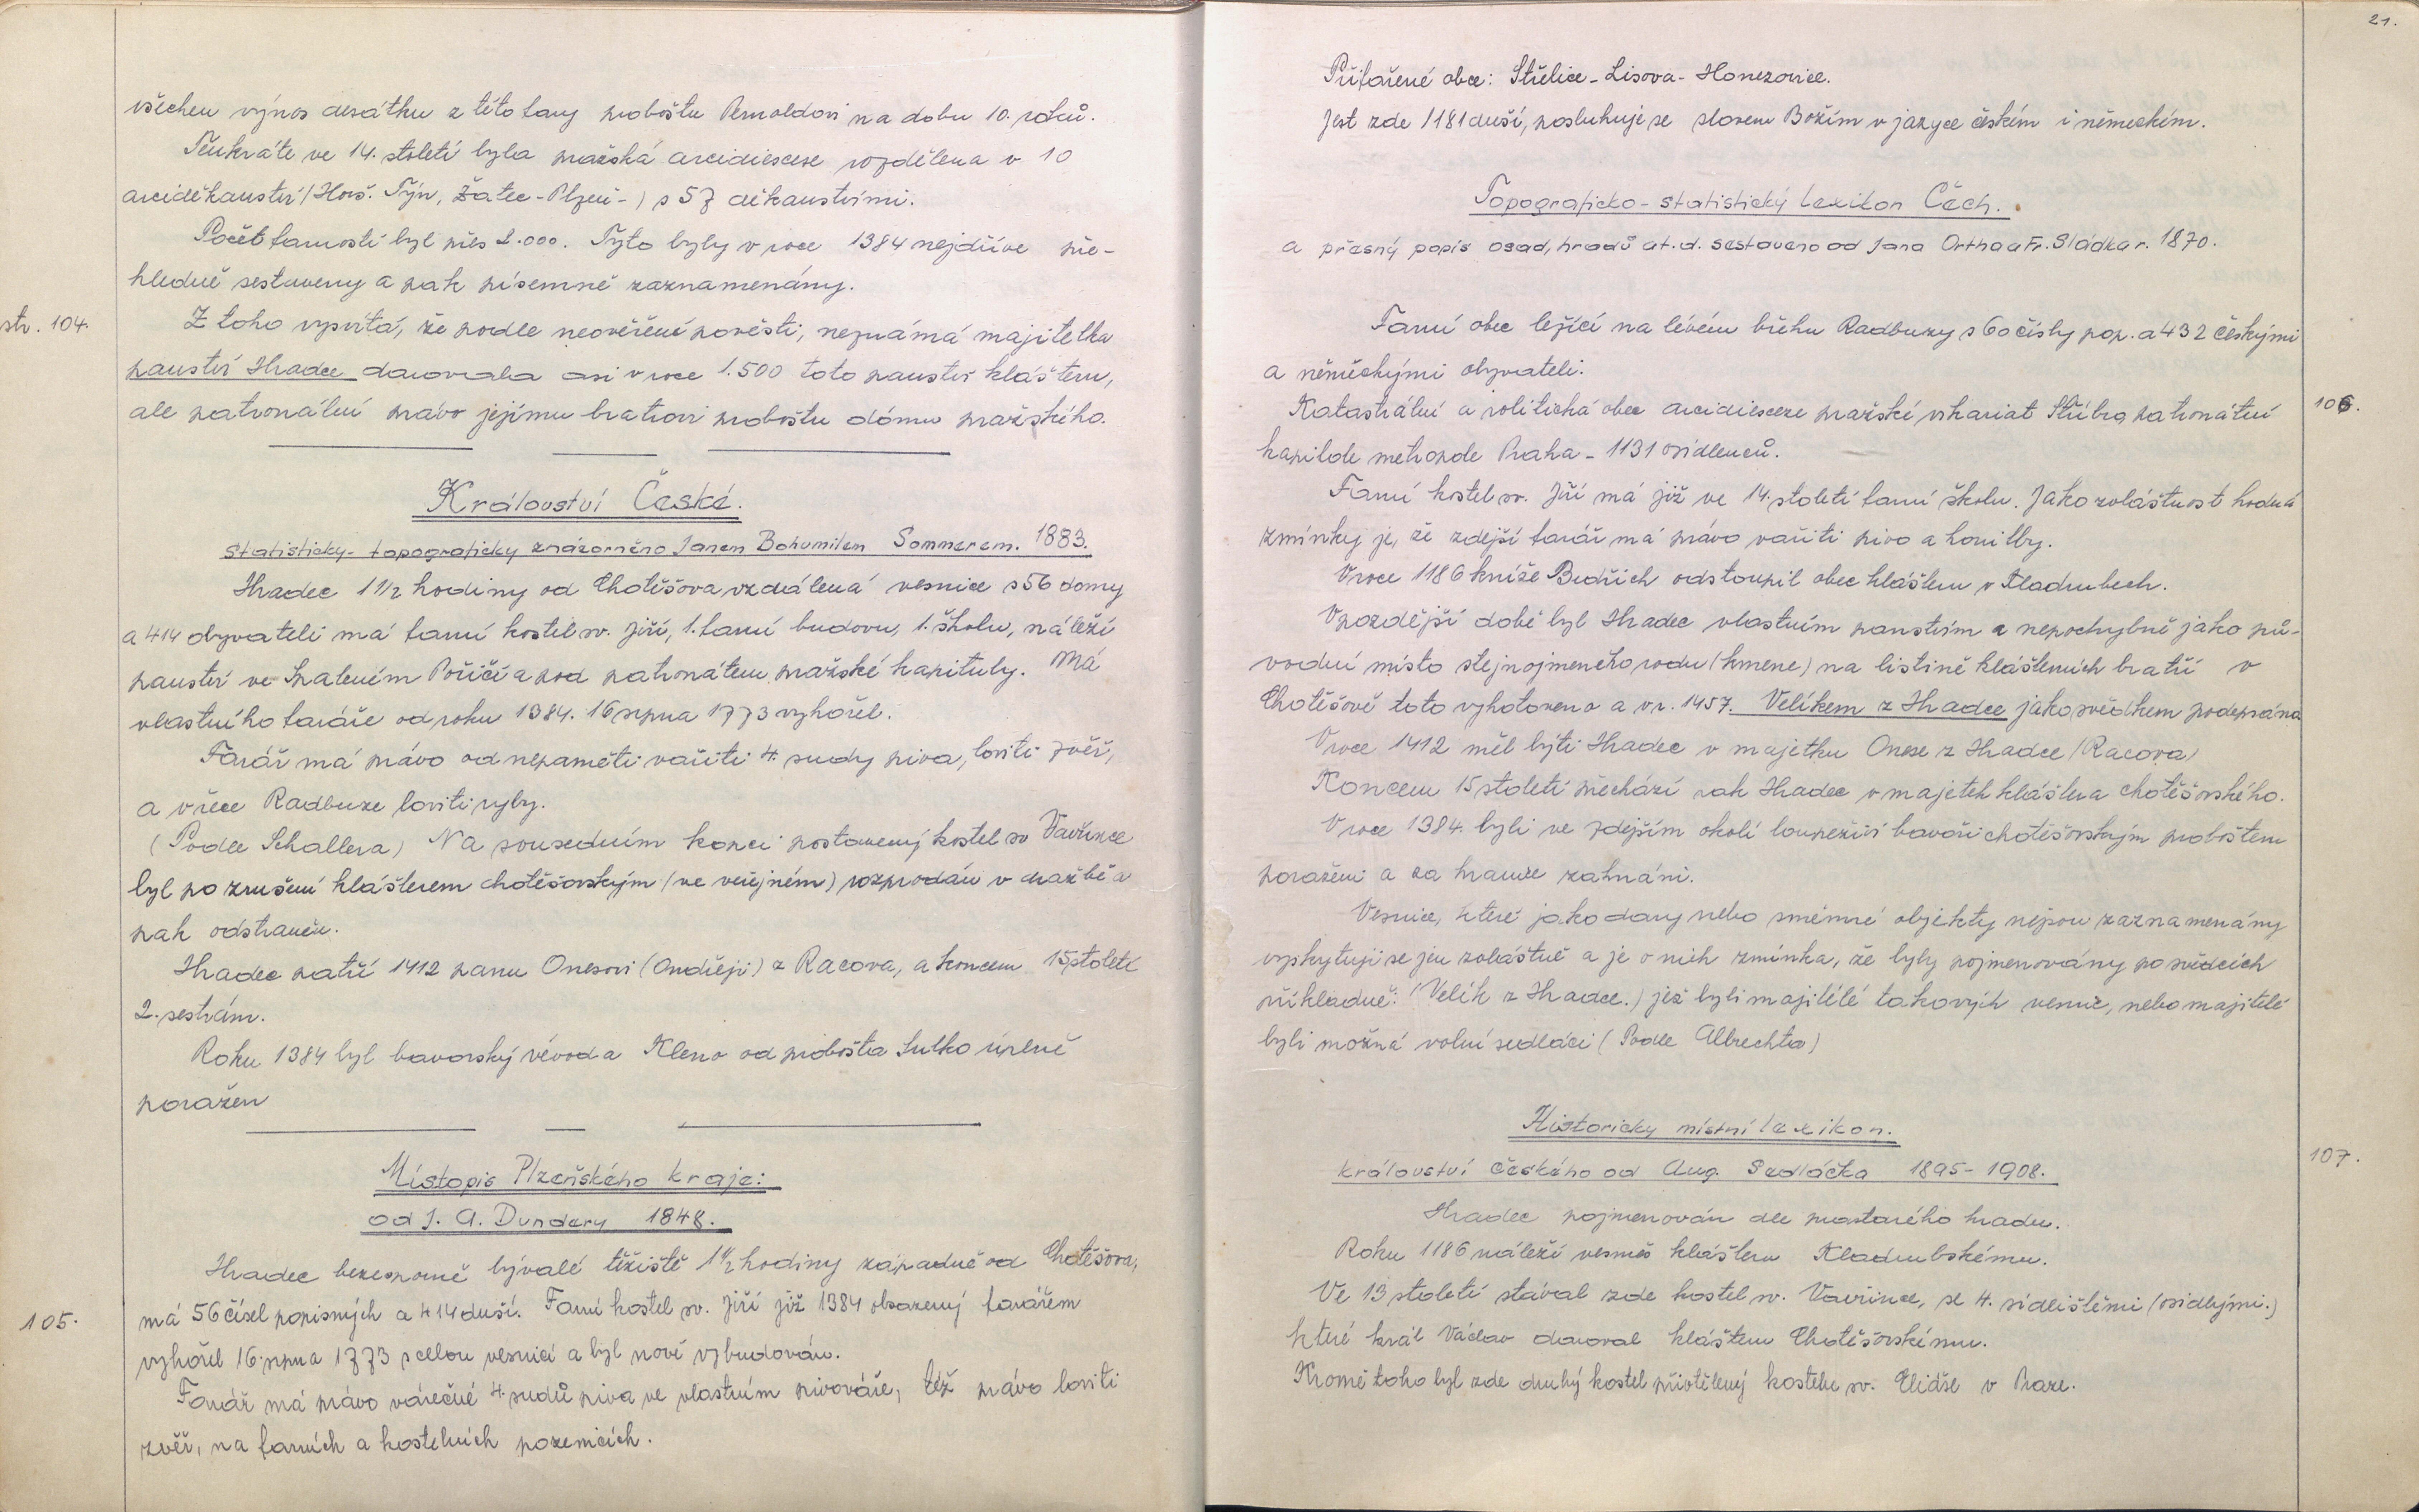 všechen výnos desátku z této fary proboštu Pernoldovi na dobu 10. roků.
Tenkráte ve 14. století byla pražská arcidiecese rozdělena v 10
arciděkanství (Horš. Týn, Žatec-Plzeň-) s 57 děkanstvími.
Počet farností byl přes 2.000. Tyto byly v roce 1384 nejdříve pře-
hledně sestaveny a pak písemně zaznamenány.
str. 104.
Z toho vysvítá, že podle neověřené pověsti, neznámá majitelka
panství Hradec darovala asi v roce 1.500 toto panství klášteru,
ale patronální právo jejímu bratrovi proboštu dómu pražského.
Království České.
statisticky-topograficky znázorněno Janem Bohumilem Sommerem. 1883.
Hradec 1 1/2 hodiny od Chotěšova vzdálená vesnice s 56 domy
a 414 obyvateli má farní kostel sv. Jiří, 1. farní budovu, 1. školu, náleží
panství ve Spáleném Poříčí a pod patronátem pražské kapituly. Má
vlastního faráře od roku 1384. 16 srpna 1773 vyhořel.
Farář má právo od nepaměti vařiti 4. sudy piva, loviti zvěř,
a v řece Radbuze loviti ryby.
(Podle Schallera) Na sousedním kopci postavený kostel sv Vavřince
byl po zrušení klášterem chotěšovským (ve veřejném) rozprodán v dražbě a
pak odstraněn.
Hradec patří 1412 panu Onesovi (Ondřeji) z Racova, a koncem 15 století
2. sestrám.
Roku 1384 byl bavorský vévoda Kleno od probošta Sulko úplně
poražen
Místopis Plzeňského kraje:
od J. A. Dundery 1848.
Hradec bezesporně bývalé těžiště 1 1/2 hodiny západně od Chotěšova,
105.
má 56 čísel popisných a 414 duší. Farní kostel sv. Jiří již 1384 obsazený farářem
vyhořel 16. srpna 1773 s celou vesnicí a byl nově vybudován.
Farář má právo várečné 4. sudů piva ve vlastním pivováře, též právo loviti
zvěř, na farních a kostelních pozemcích.
21.
Přifařené obce: Střelice-Lisova-Honezovice.
Jest zde 1181 duší, posluhuje se slovem Božím v jazyce českém i německém.
Topograficko-statistický lexikon Čech.
a přesný popis osad, hradů at.d. sestaveno od Jana Ortha a Fr. Sládka r. 1870.
Farní obec ležící na lévém břehu Radbuzy s 60 čísly pop. a 432 českými
a německými obyvateli.
106.
Katastrální a politická obec arcidiecese pražské vikariat Stříbro, patronátní
kapitole metropole Praha-1131 osídlenců.
Farní kostel sv. Jiří má již ve 14. století farní školu. Jako zvláštnost hodná
zmínky je, že zdejší farář má právo vařiti pivo a honitby.
V roce 1186 kníže Bedřich odstoupil obec klášteru v Kladrubech.
V pozdější době byl Hradec vlastním panstvím a nepochybně jako pů-
vodní místo stejnojmeného rodu (kmene) na listině klášterních bratří v
Chotěšově toto vyhotoveno a v r. 1457. Velíkem z Hradce jako svědkem podepsána
V roce 1412 měl býti Hradec v majetku Onese z Hradce (Racova)
Koncem 15 století přechází pak Hradec v majetek kláštera chotěšovského.
V roce 1384. byli ve zdejším okolí loupeživí bavoři chotěšovským proboštem
poraženi a za hranice zahnáni.
Vesnice, které jako dary nebo směnné objekty nejsou zaznamenány
vyskytují se jen zvláštně a je o nich zmínka, že byly pojmenovány po svědcích
příkladně: (Velík z Hradce.) jež byli majitelé takových vesnic, nebo majitelé
byli možná volní sedláci (Podle Albrechta)
Historicky místní lexikon.
107.
království českého od Aug. Sedláčka 1895-1908.
Hradec pojmenován dle prastarého hradu.
Roku 1186 náleží vesměs klášteru Kladrubskému.
Ve 13 století stával zde kostel sv. Vavřince, se 4. sídlištěmi (osídlými.)
které král Václav daroval klášteru Chotěšovskému.
Kromě toho byl zde druhý kostel přivtělený kostelu sv. Elidše v Praze.